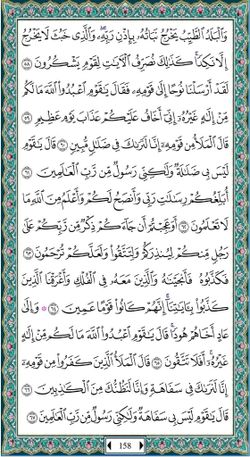 وَٱلْبَلَدُ ٱلطَّيِّبُ يَخْرُجُ نَبَاتُهُۥ بِإِذْنِ رَبِّهِۦ وَٱلَّذِى خَبُثَ لَا يَخْرُجُ
إِلَّا نَكِدًا كَذَٰلِكَ نُصَرِّفُ ٱلْءَايَٰتِ لِقَوْمٍ يَشْكُرُونَ ٥٨
لَقَدْ أَرْسَلْنَا نُوحًا إِلَىٰ قَوْمِهِۦ فَقَالَ يَٰقَوْمِ ٱعْبُدُوا۟ ٱللَّهَ مَا لَكُم
مِّنْ إِلَٰهٍ غَيْرُهُۥٓ إِنِّىٓ أَخَافُ عَلَيْكُمْ عَذَابَ يَوْمٍ عَظِيمٍ ٥٩
قَالَ ٱلْمَلَأُ مِن قَوْمِهِۦٓ إِنَّا لَنَرَىٰكَ فِى ضَلَٰلٍ مُّبِينٍ ٦٠ قَالَ يَٰقَوْمِ
لَيْسَ بِى ضَلَٰلَةٌ وَلَٰكِنِّى رَسُولٌ مِّن رَّبِّ ٱلْعَٰلَمِينَ ٦١
أُبَلِّغُكُمْ رِسَٰلَٰتِ رَبِّى وَأَنصَحُ لَكُمْ وَأَعْلَمُ مِنَ ٱللَّهِ مَا
لَا تَعْلَمُونَ ٦٢ أَوَعَجِبْتُمْ أَن جَآءَكُمْ ذِكْرٌ مِّن رَّبِّكُمْ عَلَىٰ
رَجُلٍ مِّنكُمْ لِيُنذِرَكُمْ وَلِتَتَّقُوا۟ وَلَعَلَّكُمْ تُرْحَمُونَ ٦٣
فَكَذَّبُوهُ فَأَنجَيْنَٰهُ وَٱلَّذِينَ مَعَهُۥ فِى ٱلْفُلْكِ وَأَغْرَقْنَا ٱلَّذِينَ
كَذَّبُوا۟ بِـَٔايَٰتِنَآ إِنَّهُمْ كَانُوا۟ قَوْمًا عَمِينَ ٦٤ ۞ وَإِلَىٰ
عَادٍ أَخَاهُمْ هُودًا قَالَ يَٰقَوْمِ ٱعْبُدُوا۟ ٱللَّهَ مَا لَكُم مِّنْ إِلَٰهٍ
غَيْرُهُۥٓ أَفَلَا تَتَّقُونَ ٦٥ قَالَ ٱلْمَلَأُ ٱلَّذِينَ كَفَرُوا۟ مِن قَوْمِهِۦٓ
إِنَّا لَنَرَىٰكَ فِى سَفَاهَةٍ وَإِنَّا لَنَظُنُّكَ مِنَ ٱلْكَٰذِبِينَ ٦٦
قَالَ يَٰقَوْمِ لَيْسَ بِى سَفَاهَةٌ وَلَٰكِنِّى رَسُولٌ مِّن رَّبِّ ٱلْعَٰلَمِينَ ٦٧
158